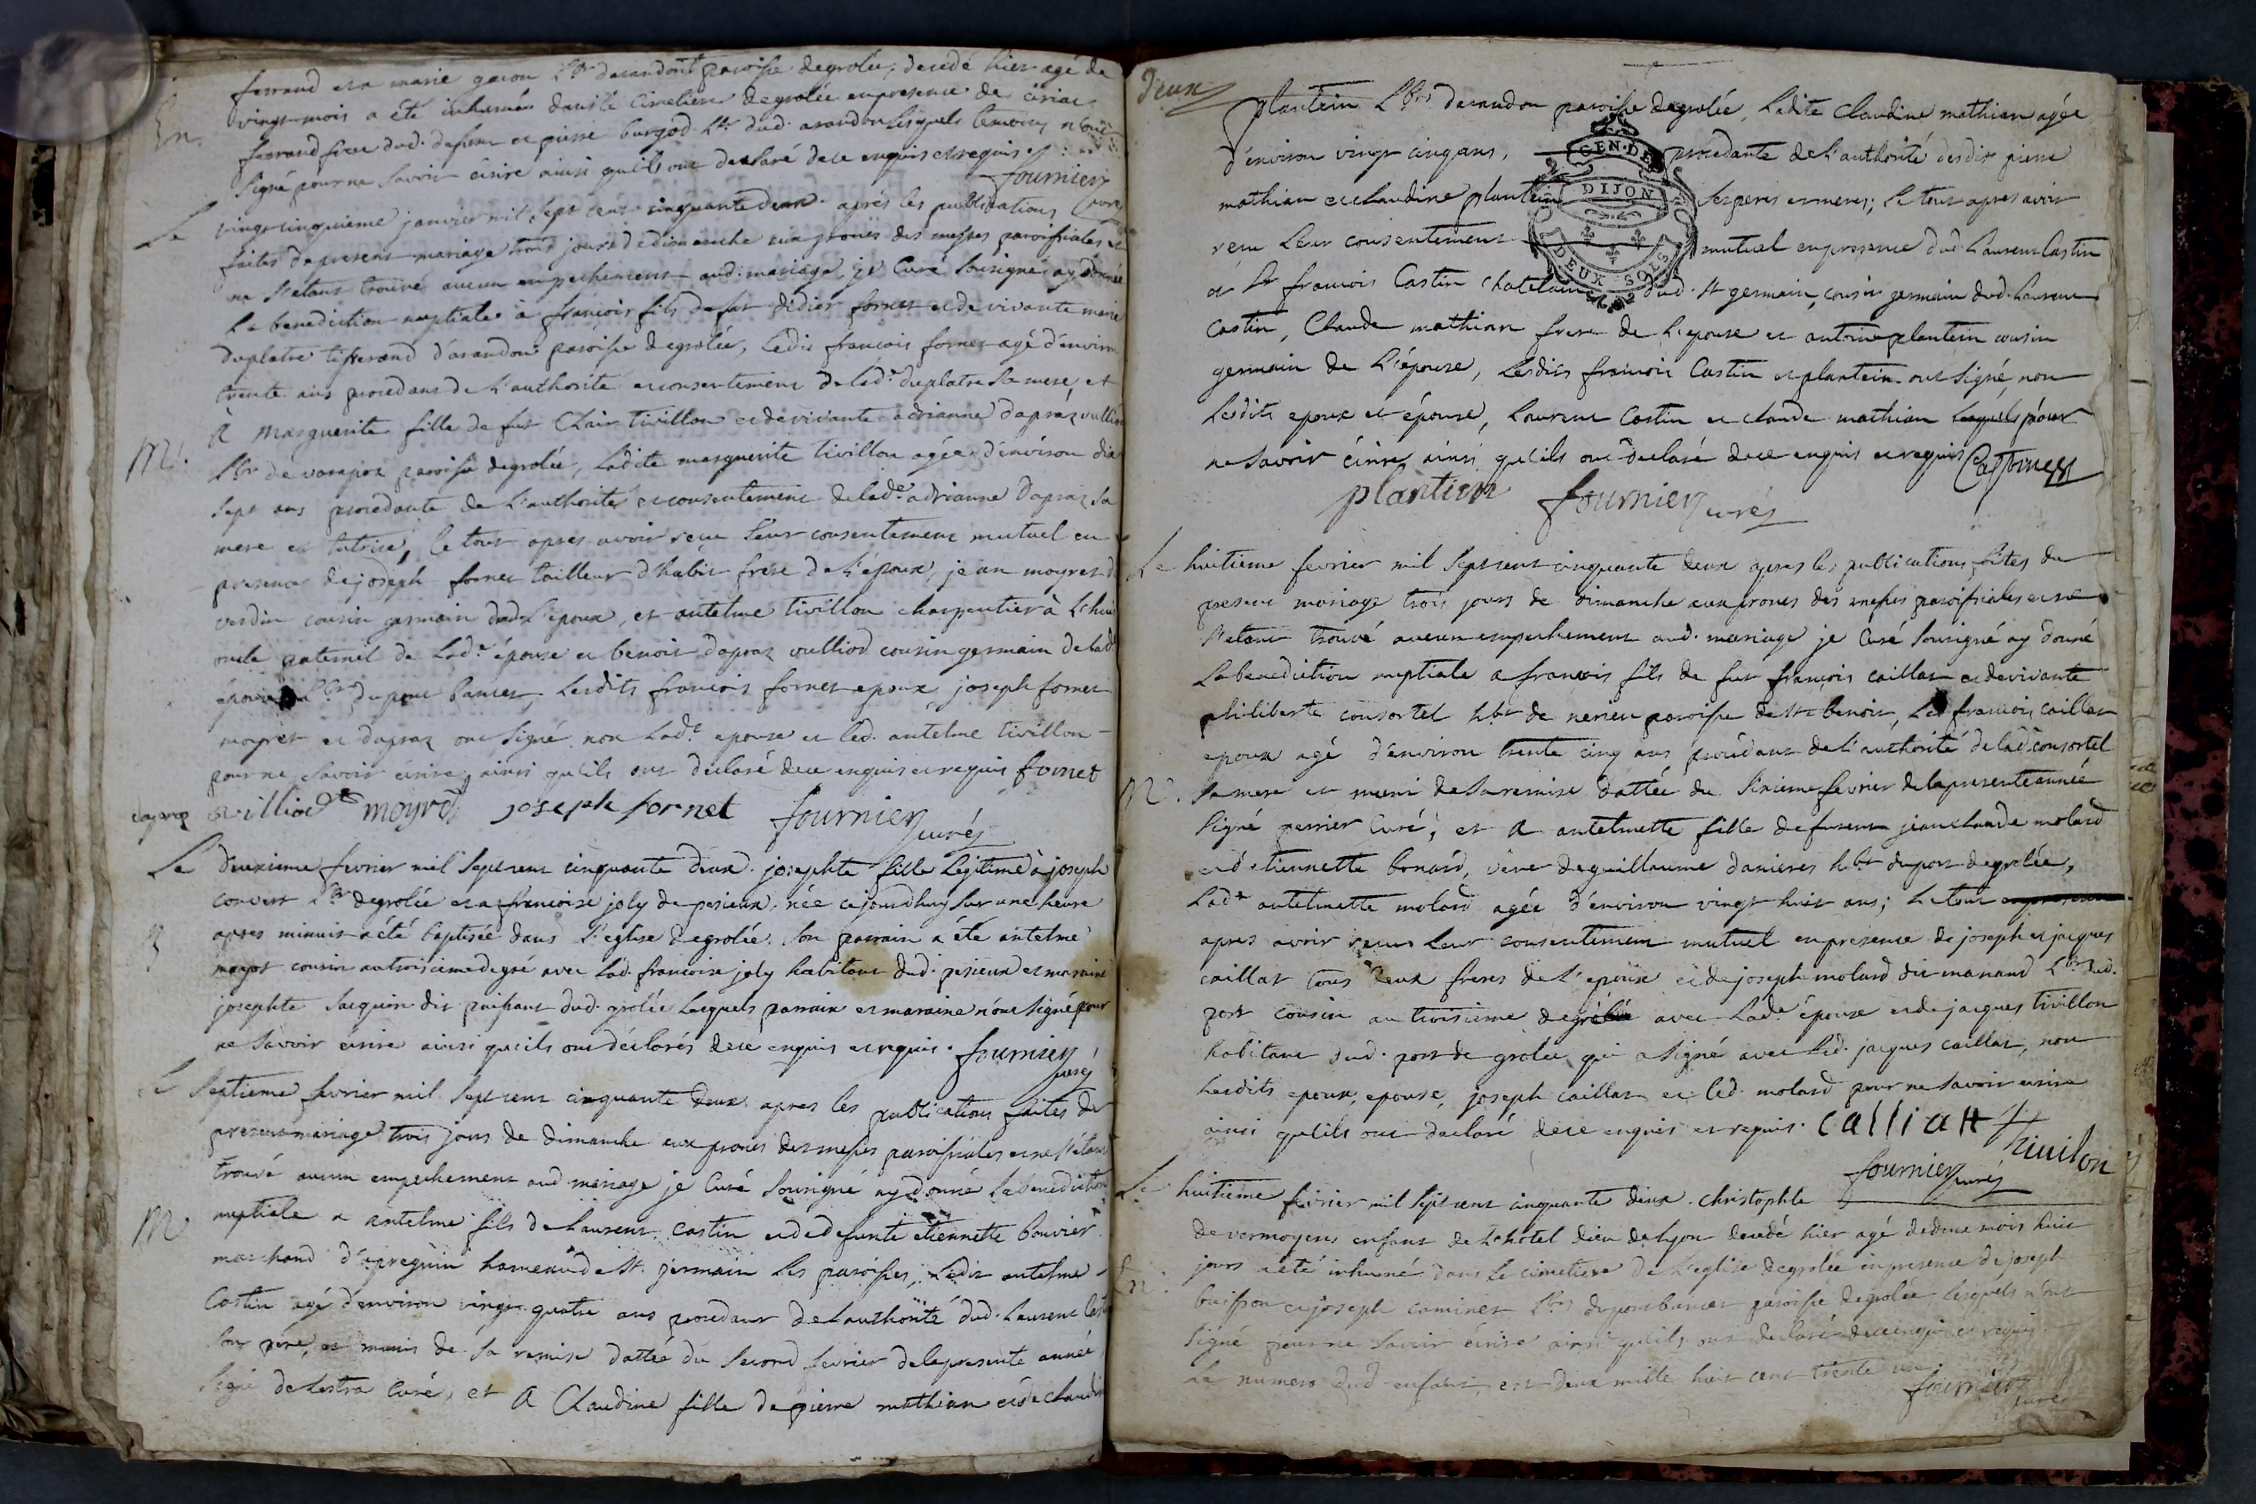 ferrand et a marie gavon hbt darandont paroisse de grolée, decedé hier agé de
En. vingt mois a été inhumé dans le cimetiere de grolée en presence de
ferrand frere dud. defunt et pierre burgod hbt dud. arandon lesquels temoins n'ont
signé pour ne savoir écrire ainsi qu'ils ont declaré de ce enquis et requis
fournier curé
Le vingt cinquieme janvier mil sept cent cinquante deux apres les publications
faites du present mariage trois jours de dimanche aux prones des messes paroissiales et
ne s'etant trouvé aucun empechement aud. mariage, je curé sousigné ay donné
la benediction nuptiale à françois fils de fut didier fornet et de vivante marie
duplatre tisserand d'arandon paroisse de grolée, ledit francois fornet agé d'environ
trente ans procedant de l'authorité et consentement de lade. duplatre sa mere, et
M. à marguerite fille de fut Clair tivillon et de vivante adrianne dapraz vullio
hbt de paroisse de grolée, ladite marguerite tivillon agée d'environ dix
sept ans procedante de l'authorité et consentement de lade. adrianne dapraz sa
mere et tutrice, le tout apres avoir reçu leur consentement mutuel en
presence de joseph fornet tailleur d'habit frere de l'époux, jean moyret
verdin cousin germain dud. l'époux, et antelme tivillon charpentier à
oncle paternel de lade. épouse et benoit dapraz vulliod cousin germain de lad
épouse hbt du port bancet, lesdits francois fornet epoux, joseph fornet
moyret et dapraz ont signé non lade. epouse et led. antelme tivillon
pour ne savoir écrire, ainsi qu'ils ont declaré de ce enquis et requis fornet
dapraz vulliod moyret joseph fornet fournier
curé
Le deuxieme fevrier mil sept cent cinquante deux. josephte fille legitime à joseph
convert hbt de grolée et a francoise joly de perieux, née ce jourdhuy sur une heure
apres minuit a été baptisée dans l'eglise de grolée. son parrain a été antelme
mayot cousin au troisieme degré avec lad. francoise joly habitant dud. perieux et maraine
josephte saequin dit puissant dud. grolée lesquels parrain et maraine n'ont signé pour
ne savoir ecrire ainsi qu'ils ont déclarés de ce enquis et requis. fournier
curé
Le septieme fevrier mil sept cent cinquante deux apres les publications faites du
present mariage trois jours de dimanche aux prones des messes paroissiales et ne s'étant
trouvé aucun empechement aud mariage je curé sousigné ay donné la benediction
M nuptiale a antelme fils de laurent castin et de defunte etiennette bouvier
marchand d'apregnin hameau de st. germain les paroisses, ledit antelme
Castin agé d'environ vingt quatre ans procedant de l'authorité dud. laurent Castin
son pere, et munis de sa remise dattée du second fevrier de la presente année
signé delestra curé, et à Claudine fille de pierre mathian et de claudine
Deux
plantein hbts darandon paroisse de grolée, ladite claudine mathian agée
d'environ vingt cinq ans, procedante de l'authorité desdit pierre
mathian et claudine plantein ses peres et meres; le tout apres avoir
reçu leur consentement mutuel en presence dud. laurent castin
et sr francois Castin chatelain dud. st germain, cousin germain dud. laurent
Castin, Claude mathian frere de l'epouse et antoine plantein cousin
germain de l'épouse, lesdits francois Castin et plantein ont signé, non
lesdits epoux et épouse, laurent castin et claude mathian lesquels pour
ne savoir écrire, ainsi qu'ils ont declaré de ce enquis et requis Castin
plantein fournier curé
GEN. DE
DIJON
DEUX SOLS
Le huitieme fevrier mil sept cent cinquante deux apres les publications faites du
present mariage trois jours de dimanche aux prones des messes paroissiales et ne
s'etant trouvé aucun empechement aud. mariage je curé sousigné ay donné
la benediction nuptiale a francois fils de fut françois caillat et de vivante
philiberte consortel hbt de nerieu paroisse de st benoit, led francois caillat
epoux agé d'environ trente cinq ans procédant de l'authorité de lade consortel
M. sa mere et muni de sa remise dattée du sixieme fevrier de la presente année
signé perrier Curé, et à antelmette fille de furent jean claude molard
et d'etiennette bonard, veuve de guillaume danieres hbt du port de grolée,
lade antelmette molard agée d'environ vingt huit ans; le tout en presence
apres avoir reçus leur consentement mutuel en presence de joseph et jacques
caillat tous deux freres de l'epoux et de joseph molard dit manaud hbt dud.
port cousin au troisieme degré avec lade. épouse et de jacques tivillon
habitant dud. port de grolée, qui a signé avec led. jacques caillat, non
lesdits epoux, epouse, joseph caillat et led. molard pour ne savoir ecrire
ainsi qu'ils ont declaré de ce enquis et requis. calliat
tiuilon
fournier curé
Le huitieme fevrier mil sept cent cinquante deux. christophle
de vermoyeres enfant de l'hôtel dieu de lyon decedé hier agé de deux mois huit
En. jours a été inhumé dans le cimetiere de l'eglise de grolée en presence de joseph
buisson et joseph caminet hbts du port bancet paroisse de grolée lesquels n'ont
signé pour ne savoir écrire ainsi qu'ils ont declaré de ce enquis et requis
Le numero dud enfant est deux mille huit cent trente un.
fournier
curé